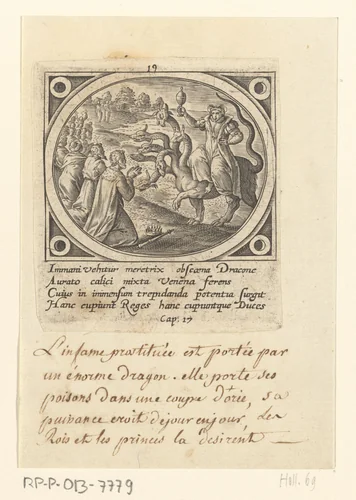 19
Immani vehitur meretrix obscœna Dracone
Aurato calici mixta venena ferens
Cuius in inmensum trepidanda potentia surgit
Hanc cupiunt Reges hanc cupiuntque Duces
Cap. 17
L'infame prostituée est portée par
un énorme dragon. elle porte ses
poisons dans une coupe d'orée, sa
puissance croit de jour en jour, Les
Rois et les princes la désirent —
RP-P-OB-7779
Holl. 69